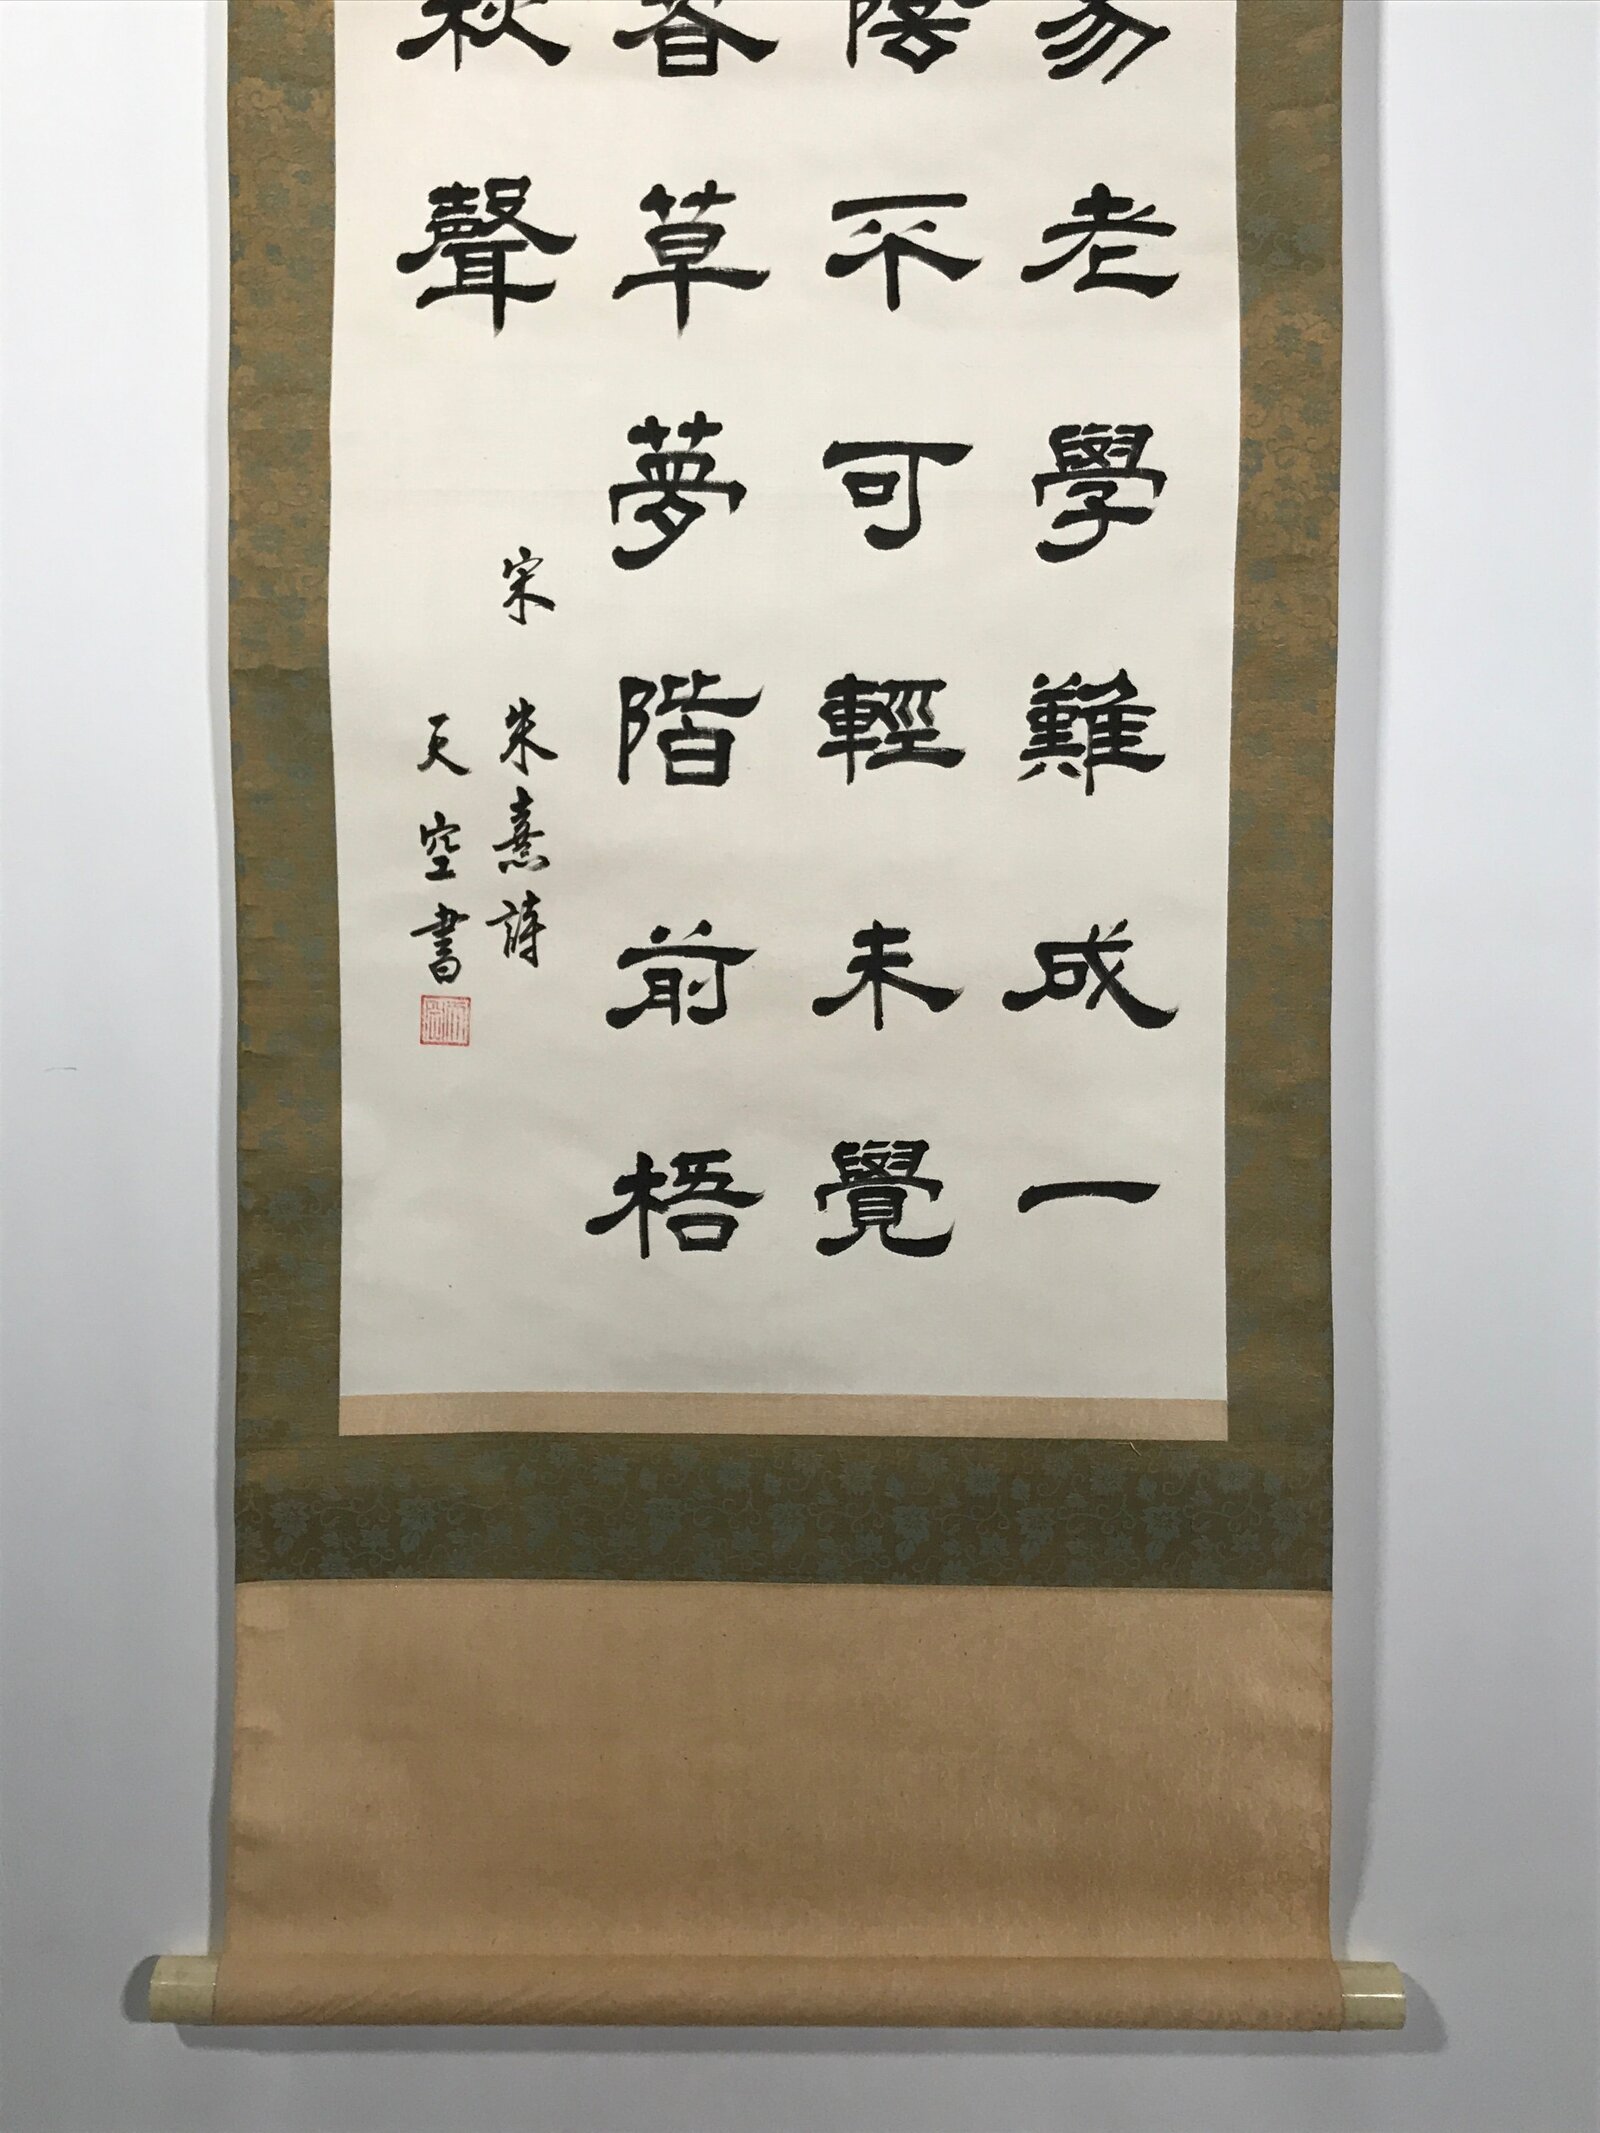 易老學難成一
陰不可輕未覺
春草夢階前梧
秋聲
宋 朱熹詩
天空書